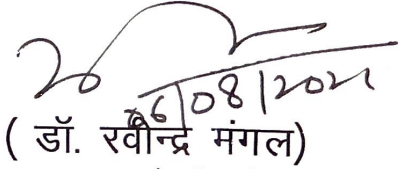 06/08/2021
( डॉ. रवीन्द्र मंगल)